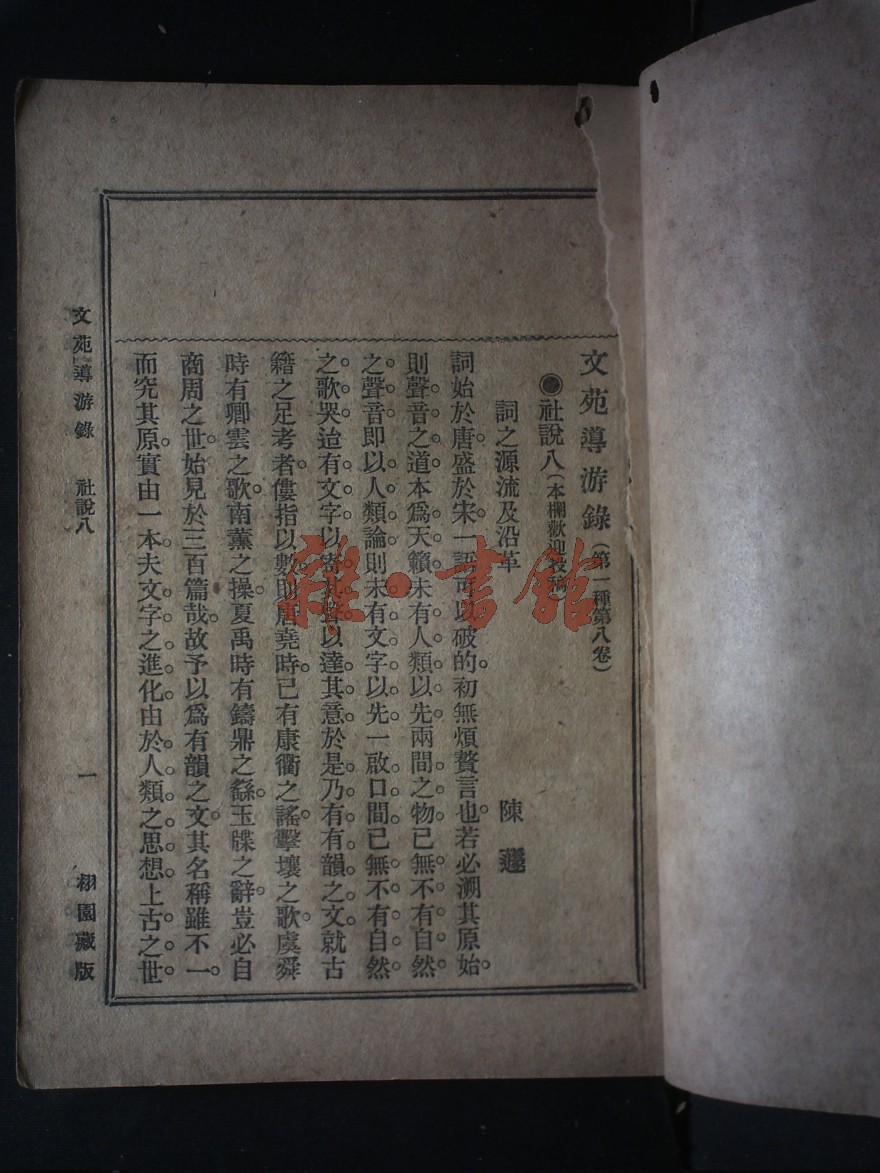 文苑導游錄(第一種第八卷)
●社說八(本欄歡迎投稿)
詞之源流及沿革 陳
詞始於唐。盛於宋。一語可以破的。初無煩贅言也。若必溯其原始。
則聲音之道。本爲天籟。未有人類以先。兩間之物。已無不有自然
之聲音。即以人類論。則未有文字以先。一啟口間。已無不有自然
之歌哭。迨有文字以寄其聲。以達其意。於是乃有有韻之文。就古
籍之足考者。僂指以數。則唐堯時。已有康衢之謠。擊壤之歌。虞舜
時有卿雲之歌。南薰之操。夏禹時有鑄鼎之繇。玉牒之辭。豈必自
商周之世。始見於三百篇哉。故予以爲有韻之文。其名稱雖不一。
而究其原。實由一本。夫文字之進化。由於人類之思想。上古之世。
文苑導游錄 社說八 一 栩園藏版
雜·書館